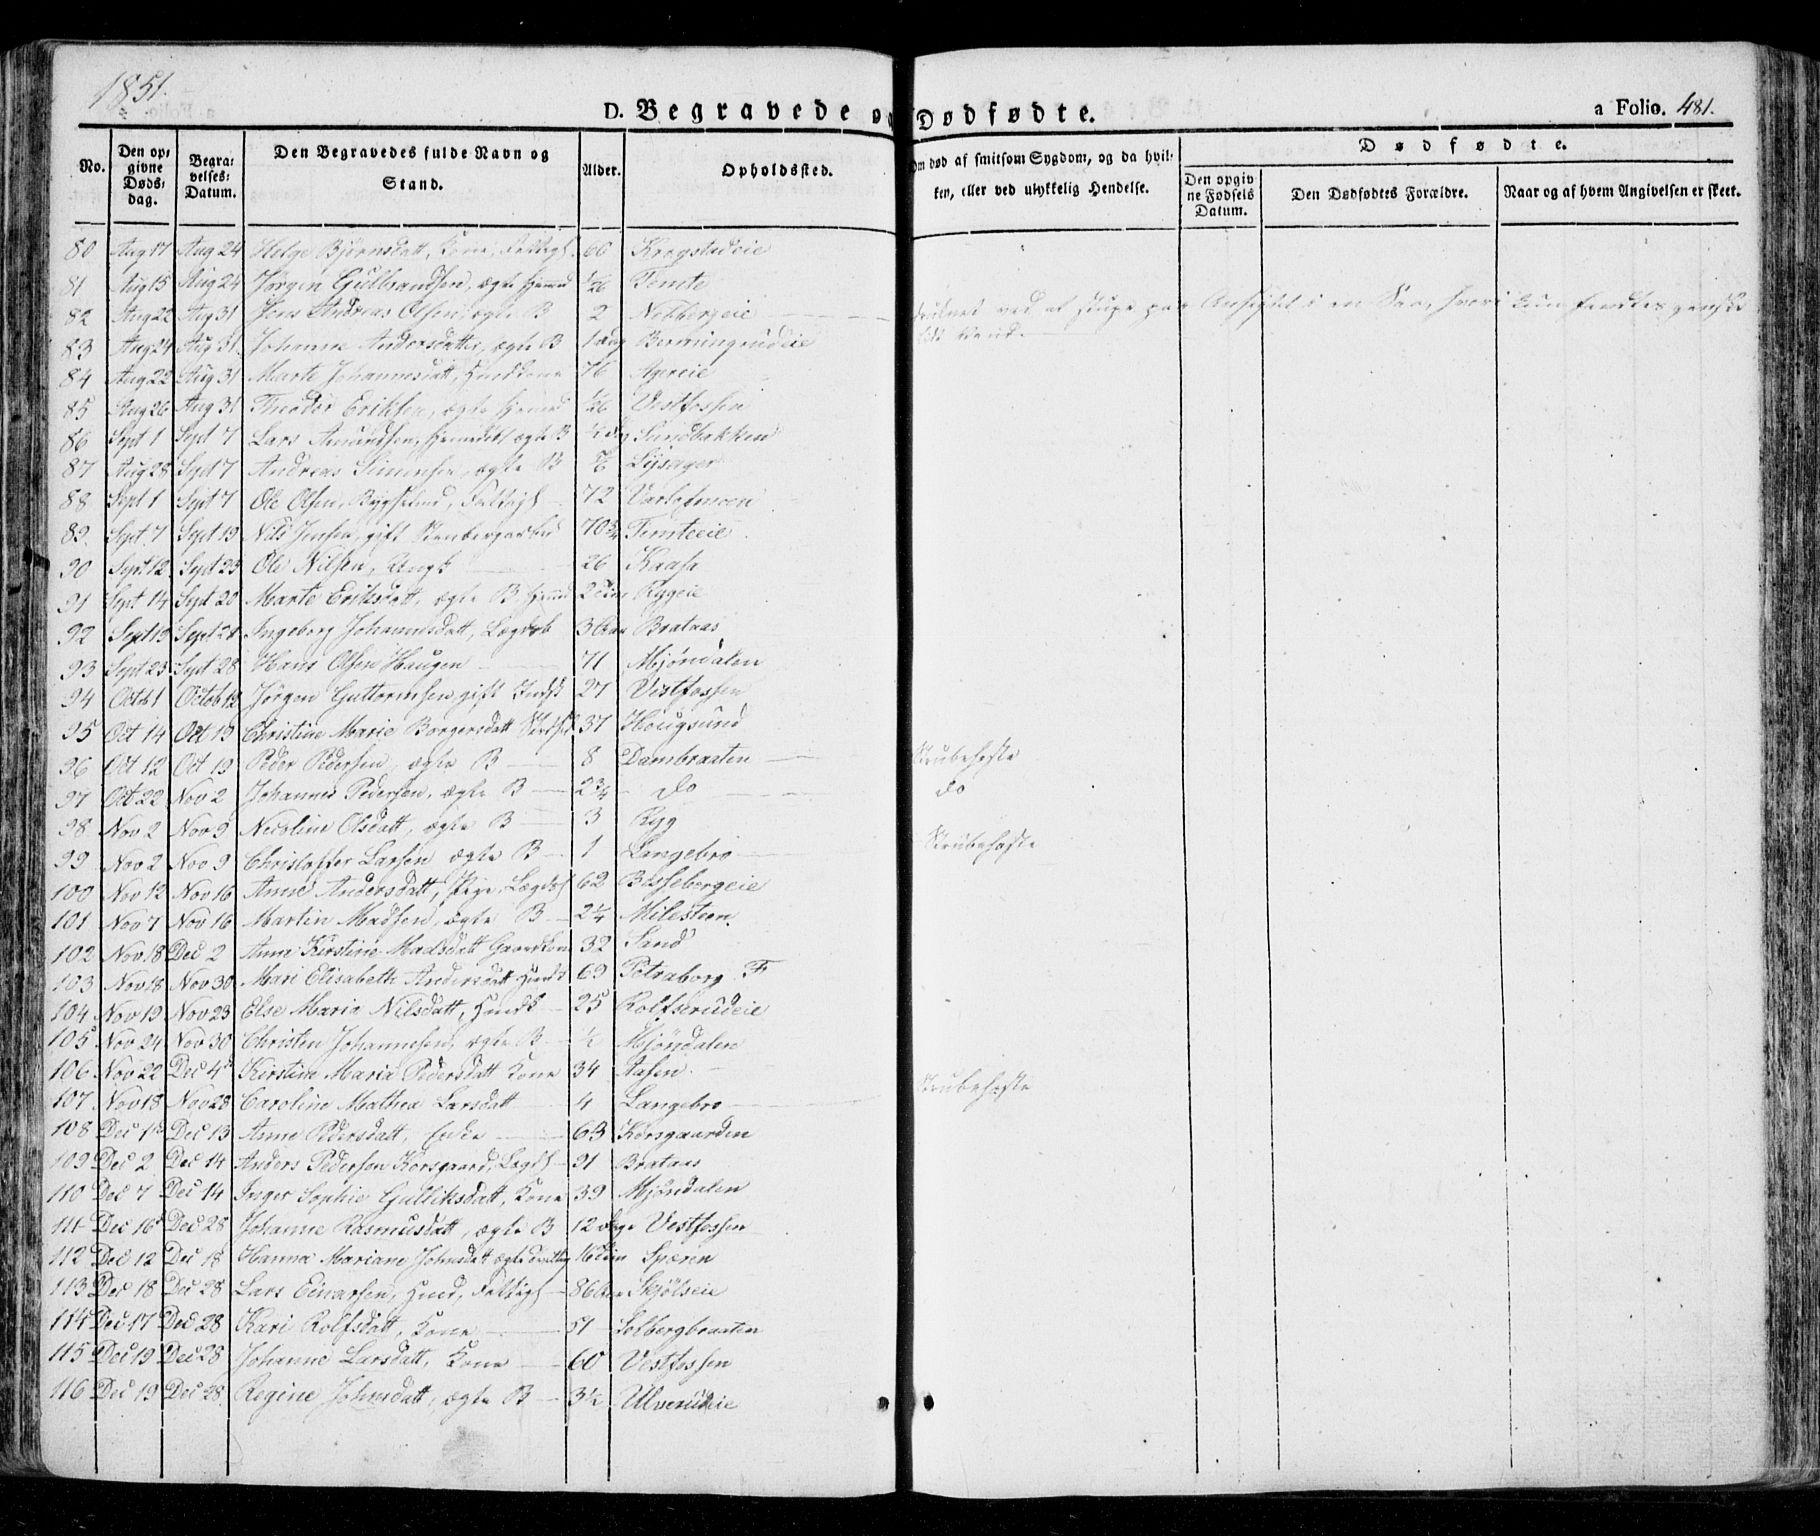 1851.
D. Begravede og Dødfødte.
a Folio. 481.
No.
Den opgivne Dødsdag.
Begravelses: Datum.
Den Begravedes fulde Navn og Stand.
Alder.
Opholdssted.
Om død af smitsom Sygdom, og da hvilken, eller ved ulykkelig Hendelse.
Dødfødte.
Den opgivne Fødsels Datum.
Den Dødfødtes Forældre.
Naar og af hvem Angivelsen er skeet.
80 Aug 17 Aug 24 Helge Bjørnsdatt, Kone, 60 Krogstadeie
81 Aug 15 Aug 24 Jørgen Gulbrandsen, ægte 1/26 Temte
82 Aug 22 Aug 31 Jens Andreas Olsen, ægte B 2 ved at paa i en hvori
83 Aug 24 Aug 31 Johanne Andersdatter, ægte B 1 dag
84 Aug 22 Aug 31 Marte Johannesdatt, 76 Agereie
85 Aug 26 Aug 31 Theodor Eriksen, ægte 1/26 Vestfossen
86 Sept 1 Sept 7 Lars Amundsen, ægte B 1/2 dag Sundbakken
87 Aug 28 Sept 7 Andreas Simensen, ægte B Lysager
88 Sept 1 Sept 7 Ole Olsen, 72 Varlofmoen
89. Sept. 7 Sept 19 Nils Jensen, gift 70 3/4 Temteeie
90 Sept 12 Ole Nilsen, Ungk 26 Kaasa
91 Sept 14 Marte Eriksdatt, ægte B Rygeie
92 Sept 19 Sept 28 Ingeborg Johannesdatt, 36 Brataas
93 Sept 23 Sept 28 Hans Olsen Haugen 71 Mjøndalen
94 Octb 1 Octob 12 Jørgen Guttormsen, gift Indst 27 Vestfossen
95 Oct 14 Oct 19 Christine Marie Borgersdatt 37 Hougsund
96 Oct 12 Oct 19 Peder Pedersen, ægte B 8 Dambraaten Strubehoste
97 Oct 22 Nov 2 Johannes Pedersen, ægte B 2 3/4 do do
98 Nov 2 Nov 9 Nicoline Olsdatt, ægte B 3 Ryg
99 Nov 2 Nov 9 Christoffer Larsen ægte B 1 Langebro Strubehoste
100 Nov 12 Nov 16 Anne Andersdatt, Pige, 62 Bassebergeie
101 Nov 7 Nov 16 Martin Madsen, ægte B 2 1/4 Milesteen
102 Nov 18 Dec 2 Anne Kirstine Madsdatt Gaardkone 32 Sand
103 Nov 18 Nov 30 Mari Elisabeth Andersdatt 69 Petraborg F
104 Nov 19 Nov 23 Else Maria Nilsdatt, 25 Rolfsrudeie
105 Nov 24 Nov 30 Christen Johannesen, ægte B 1/2 Mjøndalen
106 Nov 22 Dec 4 Kirstine Maria Pedersdatt Kone 34 Aasen
107 Nov 18 Nov 28 Caroline Mathea Larsdatt 4 Langebro Strubehoste
108 Dec 1 Dec 13 Anne Pedersdatt, Enke 63 Korsgaarden
109 Dec 2 Dec 14 Anders Pedersen Korsgaard, 91 Brataas
110 Dec 7 Dec 14 Inger Sophie Gulliksdatt, Kone 39 Mjøndalen
111 Dec 16 Dec 28 Johanne Rasmusdatt, ægte B 12 dage Vestfossen
112 Dec 12 Dec 18 Hanna Mariane Johnsdatt ægte 16 Spæren
113 Dec 18 Dec 28 Lars Einarsen, 86 Skjølseie
114 Dec 17 Dec 28 Kari Rolfsdatt, Kone 51 Solbergbraaten
115 Dec 19 Dec 28 Johanne Larsdatt, Kone 60 Vestfossen
116 Dec 19 Dec 28 Regine Johnsdatt, ægte B 3 1/2 Ulverudeie